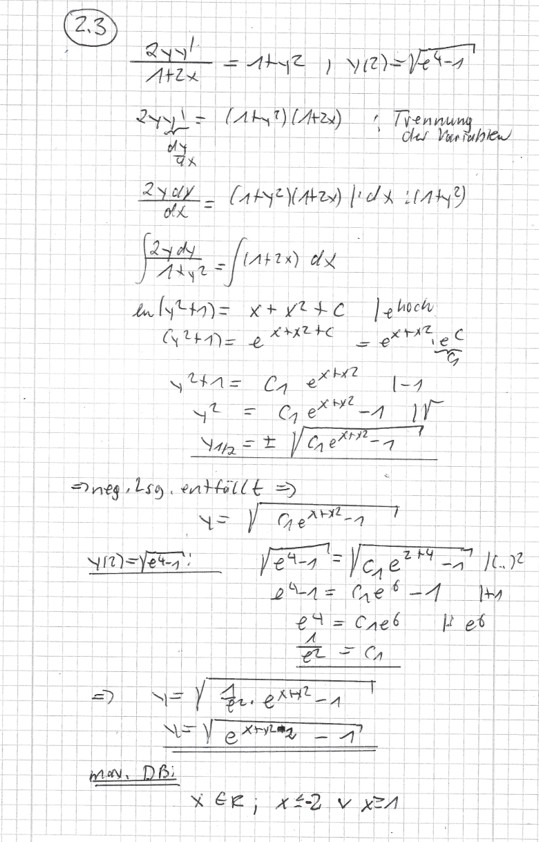 2.3
2yy' / (1+2x) = 1+y² , y(2)=√(e⁴-1)
2yy' = (1+y²)(1+2x) ; Trennung
dy/dx der Variablen
2y dy / dx = (1+y²)(1+2x) |·dx :(1+y²)
∫ 2y dy / (1+y²) = ∫ (1+2x) dx
ln(y²+1) = x + x² + C | e hoch
(y²+1) = e^(x+x²+C) = e^(x+x²) · e^C
C₁
y²+1 = C₁ e^(x+x²) |-1
y² = C₁ e^(x+x²) - 1 |√
y₁/₂ = ± √(C₁e^(x+x²) - 1)
⇒ neg. Lsg. entfällt ⇒
y = √(C₁e^(x+x²) - 1)
y(2)=√(e⁴-1): √(e⁴-1) = √(C₁e^(2+4) - 1) |(..)²
e⁴-1 = C₁e⁶ - 1 |+1
e⁴ = C₁e⁶ |: e⁶
1/e² = C₁
⇒ y = √(1/e² · e^(x+x²) - 1)
y = √(e^(x+x²-2) - 1)
max. DB:
x ∈ R ; x ≤ -2 ∨ x ≥ 1